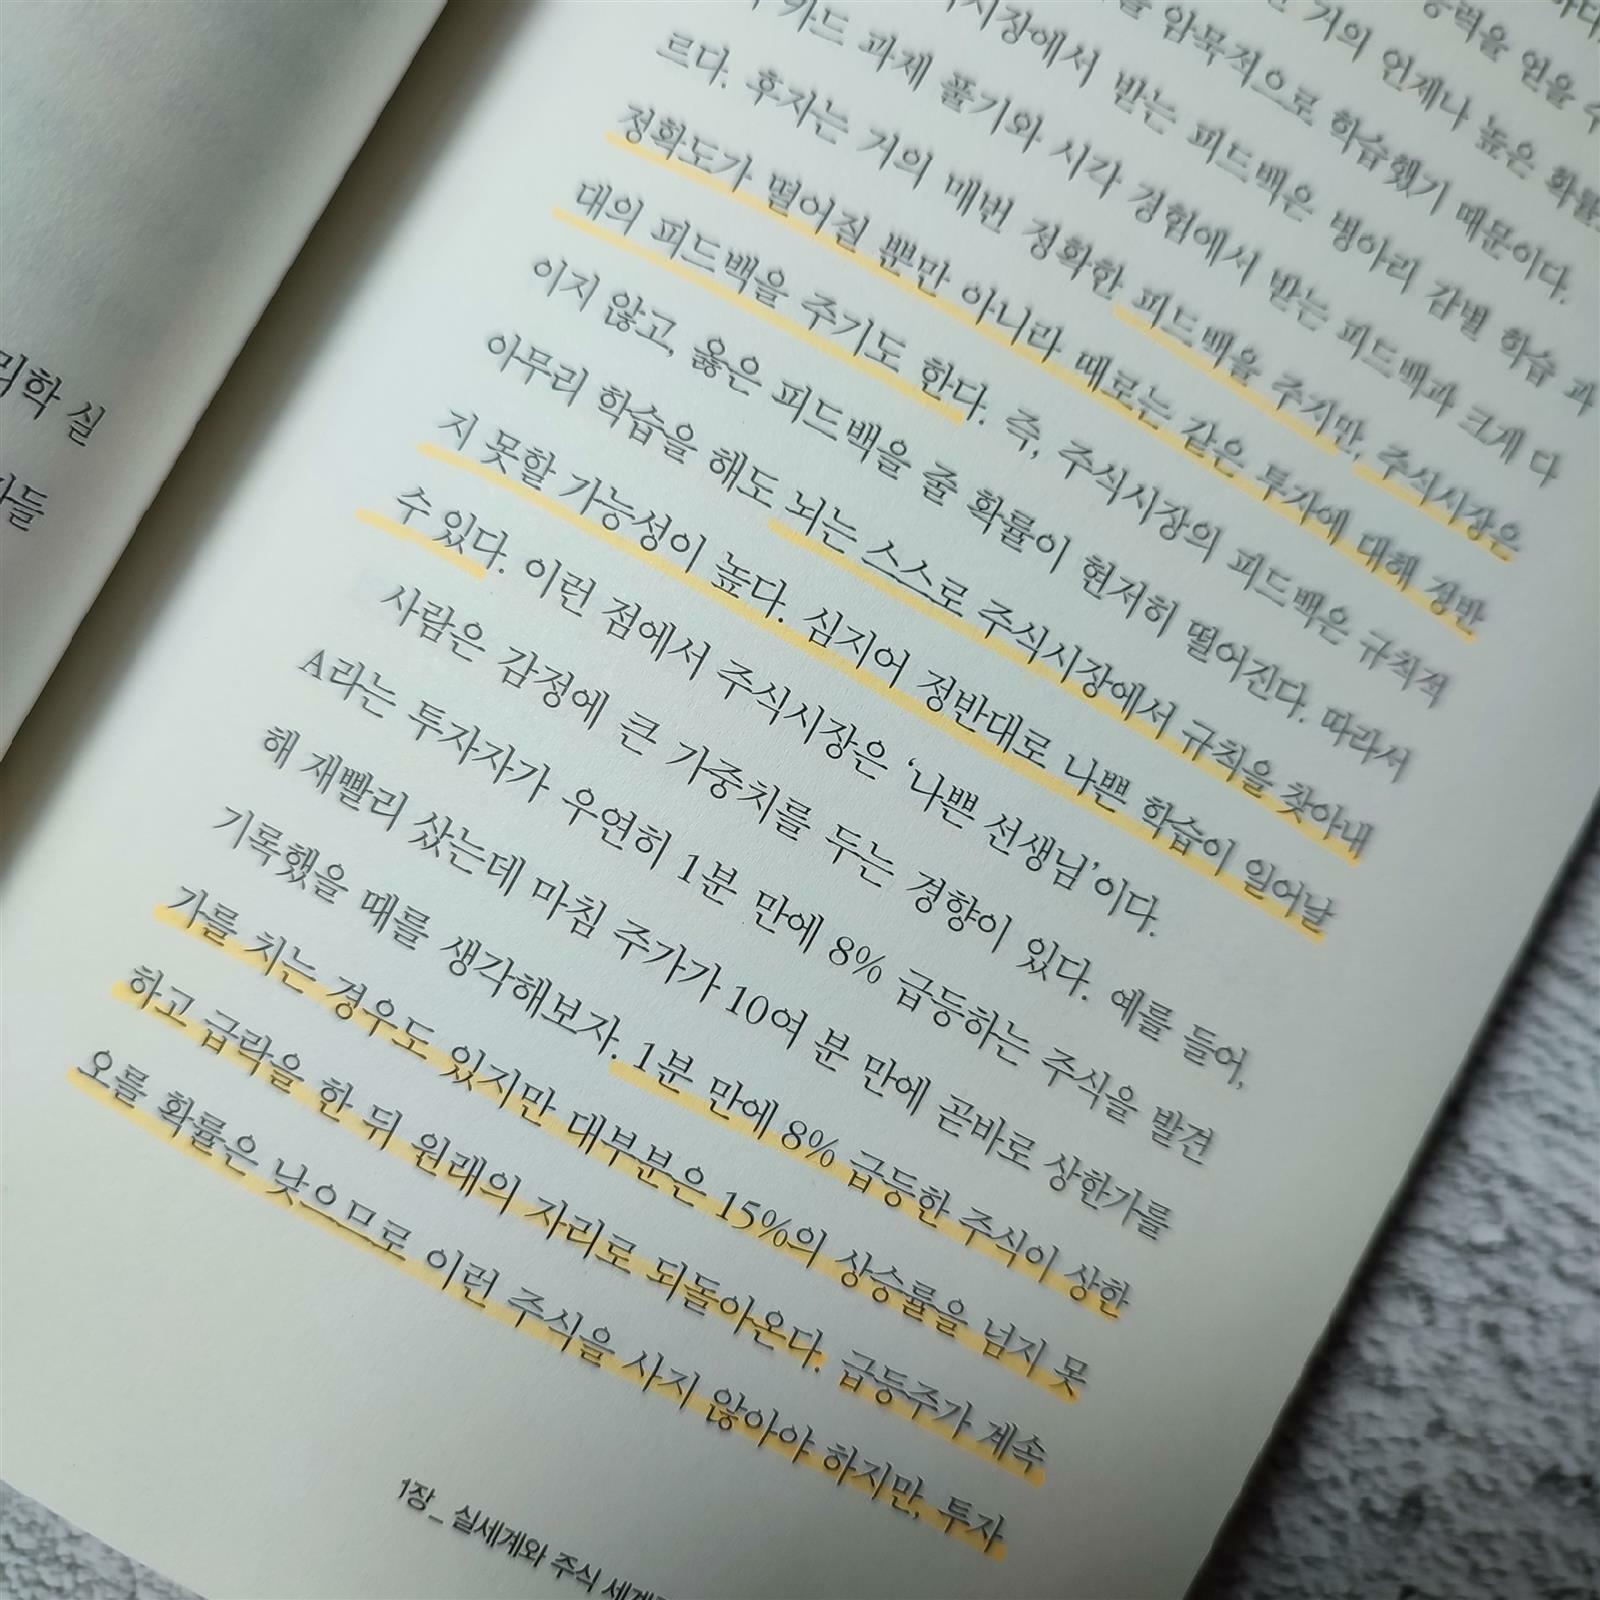 리학 실
자들
능력을 얻을 수
거의 언제나 높은 확률
을 암묵적으로 학습했기 때문이다.
시장에서 받는 피드백은 병아리 감별 학습 과
카드 과제 풀기와 시각 경험에서 받는 피드백과 크게 다
르다. 후자는 거의 매번 정확한 피드백을 주지만, 주식시장은
정확도가 떨어질 뿐만 아니라 때로는 같은 투자에 대해 정반
대의 피드백을 주기도 한다. 즉, 주식시장의 피드백은 규칙적
이지 않고, 옳은 피드백을 줄 확률이 현저히 떨어진다. 따라서
아무리 학습을 해도 뇌는 스스로 주식시장에서 규칙을 찾아내
지 못할 가능성이 높다. 심지어 정반대로 나쁜 학습이 일어날
수 있다. 이런 점에서 주식시장은 '나쁜 선생님'이다.
사람은 감정에 큰 가중치를 두는 경향이 있다. 예를 들어,
A라는 투자자가 우연히 1분 만에 8% 급등하는 주식을 발견
해 재빨리 샀는데 마침 주가가 10여 분 만에 곧바로 상한가를
기록했을 때를 생각해보자. 1분 만에 8% 급등한 주식이 상한
가를 치는 경우도 있지만 대부분은 15%의 상승률을 넘지 못
하고 급락을 한 뒤 원래의 자리로 되돌아온다. 급등주가 계속
오를 확률은 낮으므로 이런 주식을 사지 않아야 하지만, 투자
1장_ 실세계와 주식 세계